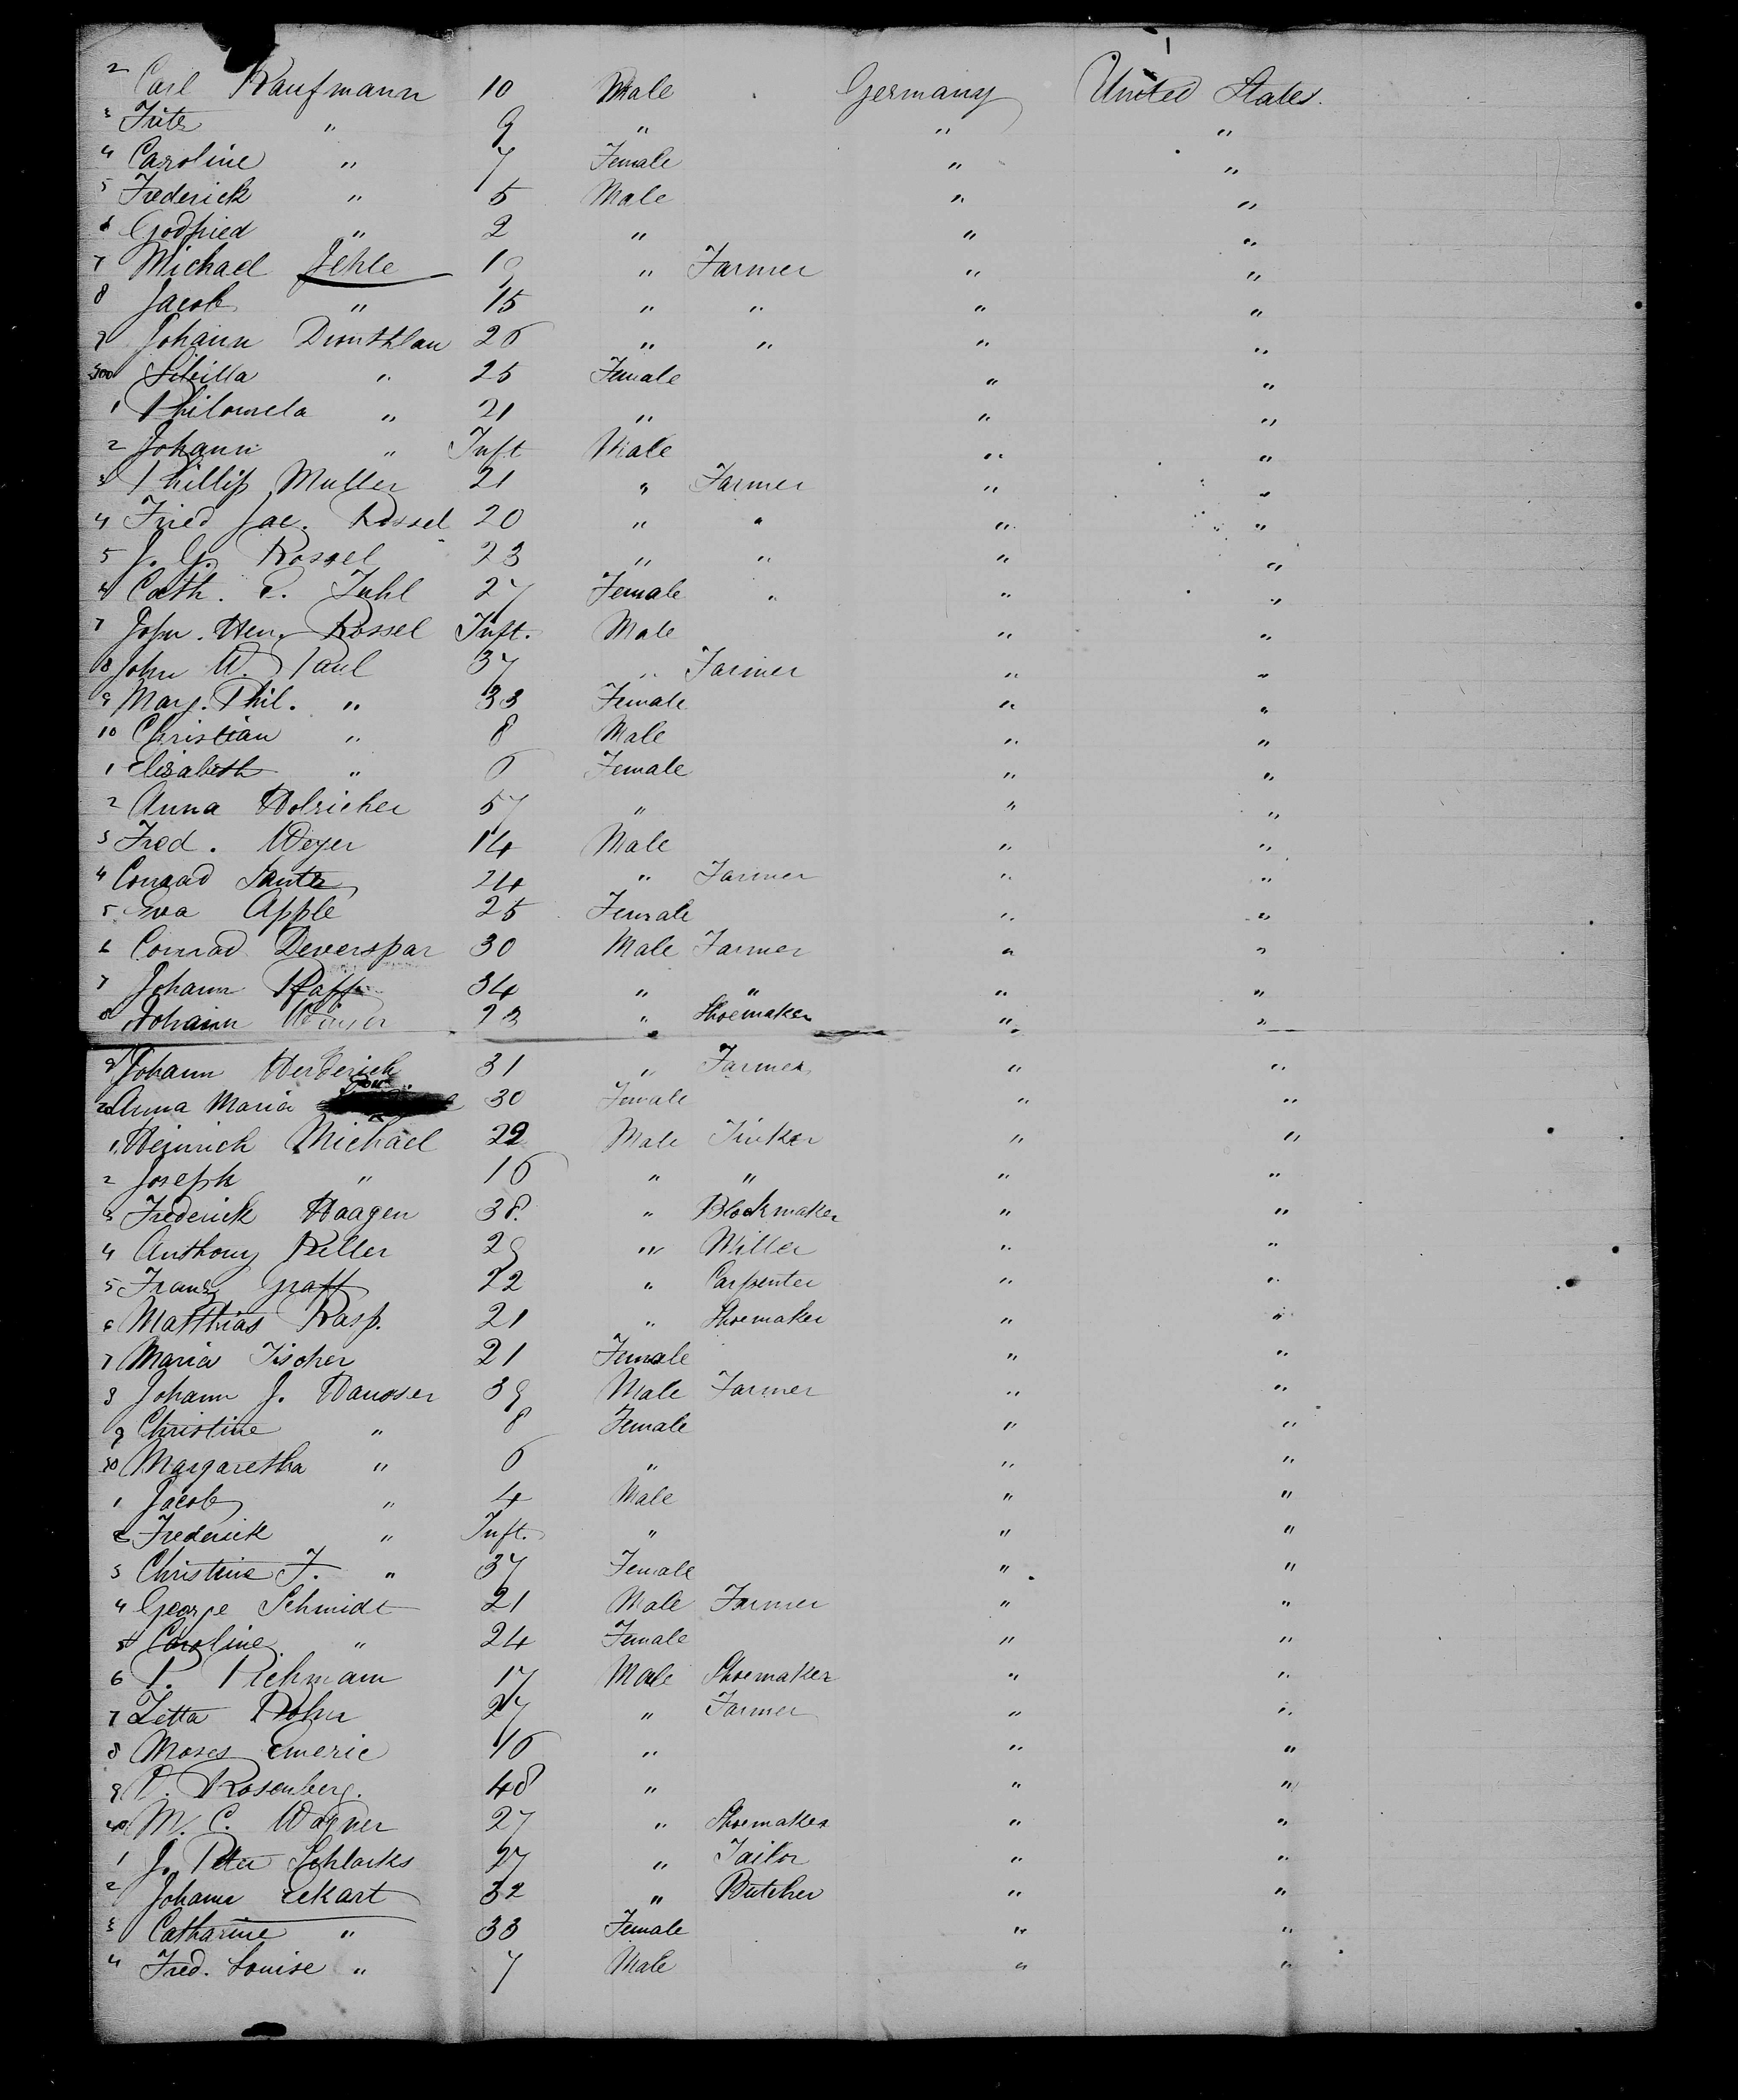 2 Carl Kaufmann 10 Male Germany United States.
3 Fritz " 9 " " "
4 Caroline " 7 Female " "
5 Frederick " 5 Male " "
6 Godfried " 2 " " "
7 Michael Jehle " Farmer " "
8 Jacob " 15 " " " "
9 Johann 26 " " " "
300 " 25 Female " "
1 Philomela " 21 " " "
2 Johann " Inft Male " "
3 Phillip Muller 21 " Farmer " "
4 Fried Jac. Rossel 20 " " " "
5 J. G. Rossel 23 " " " "
6 Cath. E. Juhl 27 Female " " "
7 John. Hen. Rossel Inft. Male " "
8 John W. Paul 37 " Farmer " "
9 Marg. Phil. " 33 Female " "
10 Christian " 8 Male " "
1 Elisabeth " 6 Female " "
2 Anna Holricher 57 " " "
3 Fred. Weyer 14 Male " "
4 Conrad Santz 24 " Farmer " "
5 Eva Apple 25 Female " "
6 Conrad Deverspar 30 Male Farmer " "
7 Johann Raff 34 " " " "
8 Johann 23 " Shoemaker " "
9 Johann Herderich 31 " Farmer " "
20 Anna Maria 30 Female " "
1 Heinrich Michael 22 Male Tinker " "
2 Joseph " 16 " " " "
3 Frederick Haagen 38. " Blockmaker " "
4 Anthony Riller 29 " Miller " "
5 Franz Graff 22 " Carpenter " "
6 Matthias Rasp. 21 " Shoemaker " "
7 Maria Fischer 21 Female " "
8 Johann J. Hausser 39 Male Farmer " "
9 Christine " 8 Female " "
30 Margaretha " 6 " " "
1 Jacob " 4 Male " "
2 Frederick " Inft. " " "
3 Christine F. " 37 Female " "
4 George Schmidt 21 Male Farmer " "
5 Caroline " 24 Female " "
6 P. Richmann 17 Male Shoemaker " "
7 Zetta Rohn 27 " Farmer " "
8 Moses Emeric 16 " " "
9 Rosenberg. 48 " " "
40 M. C. Wagner 27 " Shoemaker " "
1 J. Peter Schlarks 27 " Tailor " "
2 Johann Eckart 32 " Butcher " "
3 Catharine " 33 Female " "
4 Fred. Louise " 7 Male " "